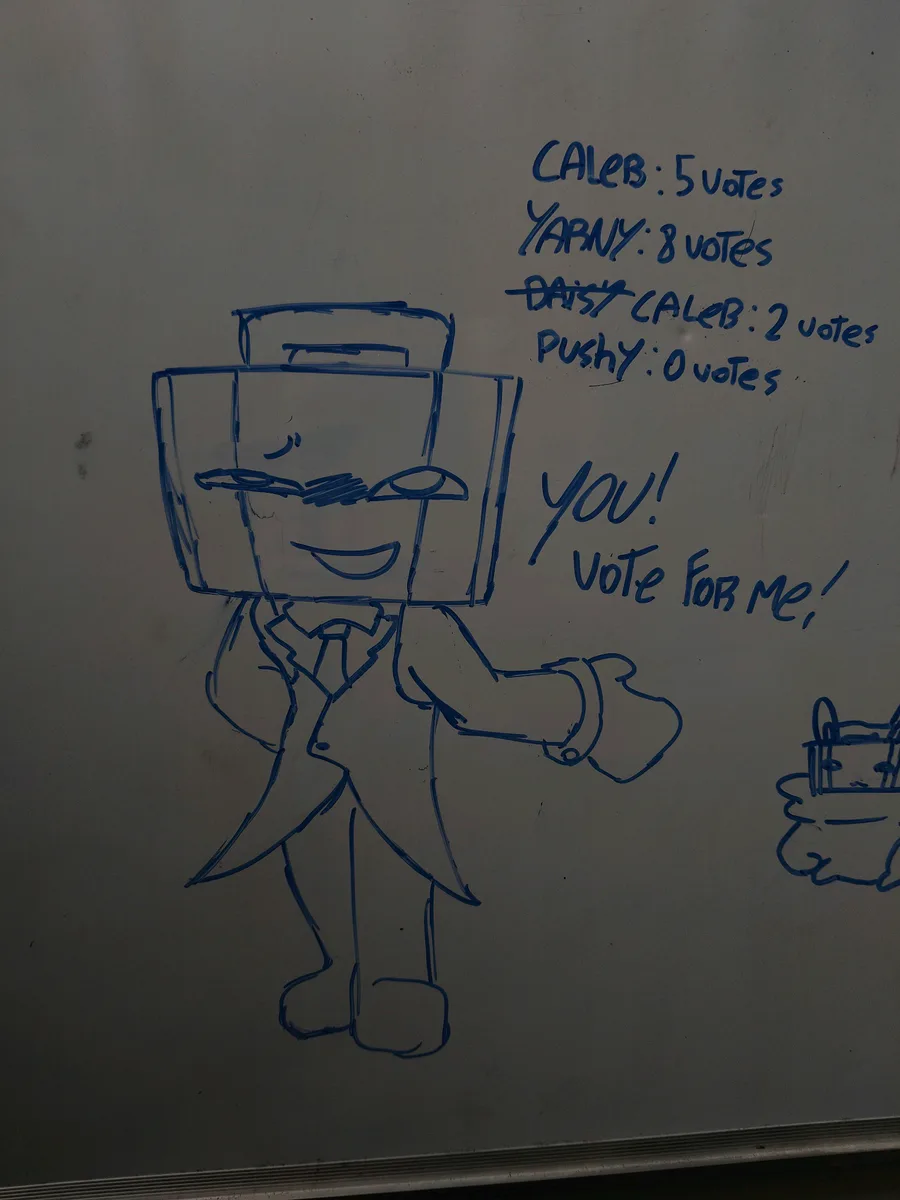 CALeB: 5 VoTes
YARNY: 8 VoTes
DAisY CALeB: 2 VoTes
PUsHY: 0 VoTes
YOU!
VoTe FoR Me!